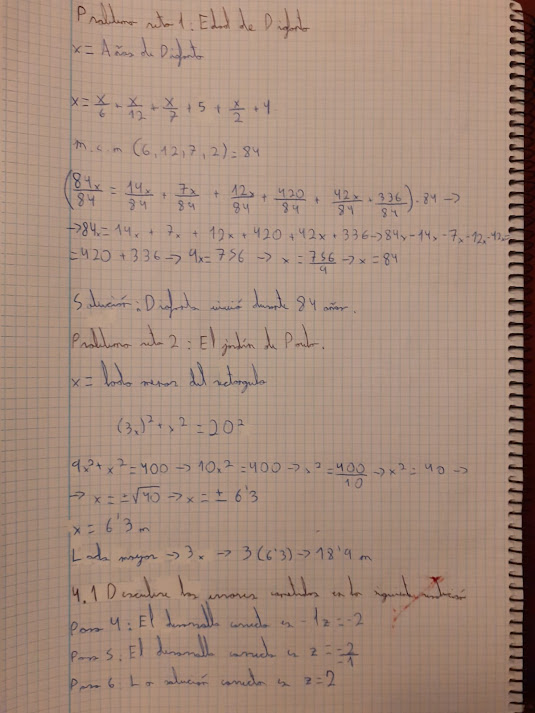 Problema reto 1: Edad de Diofanto
x = Años de Diofanto
x = x/6 + x/12 + x/7 + 5 + x/2 + 4
m.c.m (6, 12, 7, 2) = 84
(84x/84 = 14x/84 + 7x/84 + 12x/84 + 420/84 + 42x/84 + 336/84) · 84 →
→ 84x = 14x + 7x + 12x + 420 + 42x + 336 → 84x - 14x - 7x - 12x - 42x =
= 420 + 336 → 9x = 756 → x = 756/9 → x = 84
Solución: Diofanto vivió durante 84 años.
Problema reto 2: El jardín de Paulo.
x = lado menor del rectángulo
(3x)² + x² = 20²
9x² + x² = 400 → 10x² = 400 → x² = 400/10 → x² = 40 →
→ x = ±√40 → x = ± 6'3
x = 6'3 m
Lado mayor → 3x → 3(6'3) → 18'9 m
4.1 Descubre los errores cometidos en la siguiente
Paso 4: El desarrollo correcto es -1z = -2
Paso 5: El desarrollo correcto es z = -2/-1
Paso 6: La solución correcta es z = 2